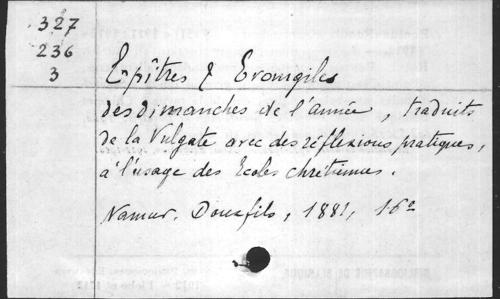 327
236
3
Epîtres & Evangiles
des dimanches de l'année, traduits
de la Vulgate avec des réflexions pratiques,
à l'usage des Ecoles chrétiennes.
Namur. Douxfils, 1881, 16°